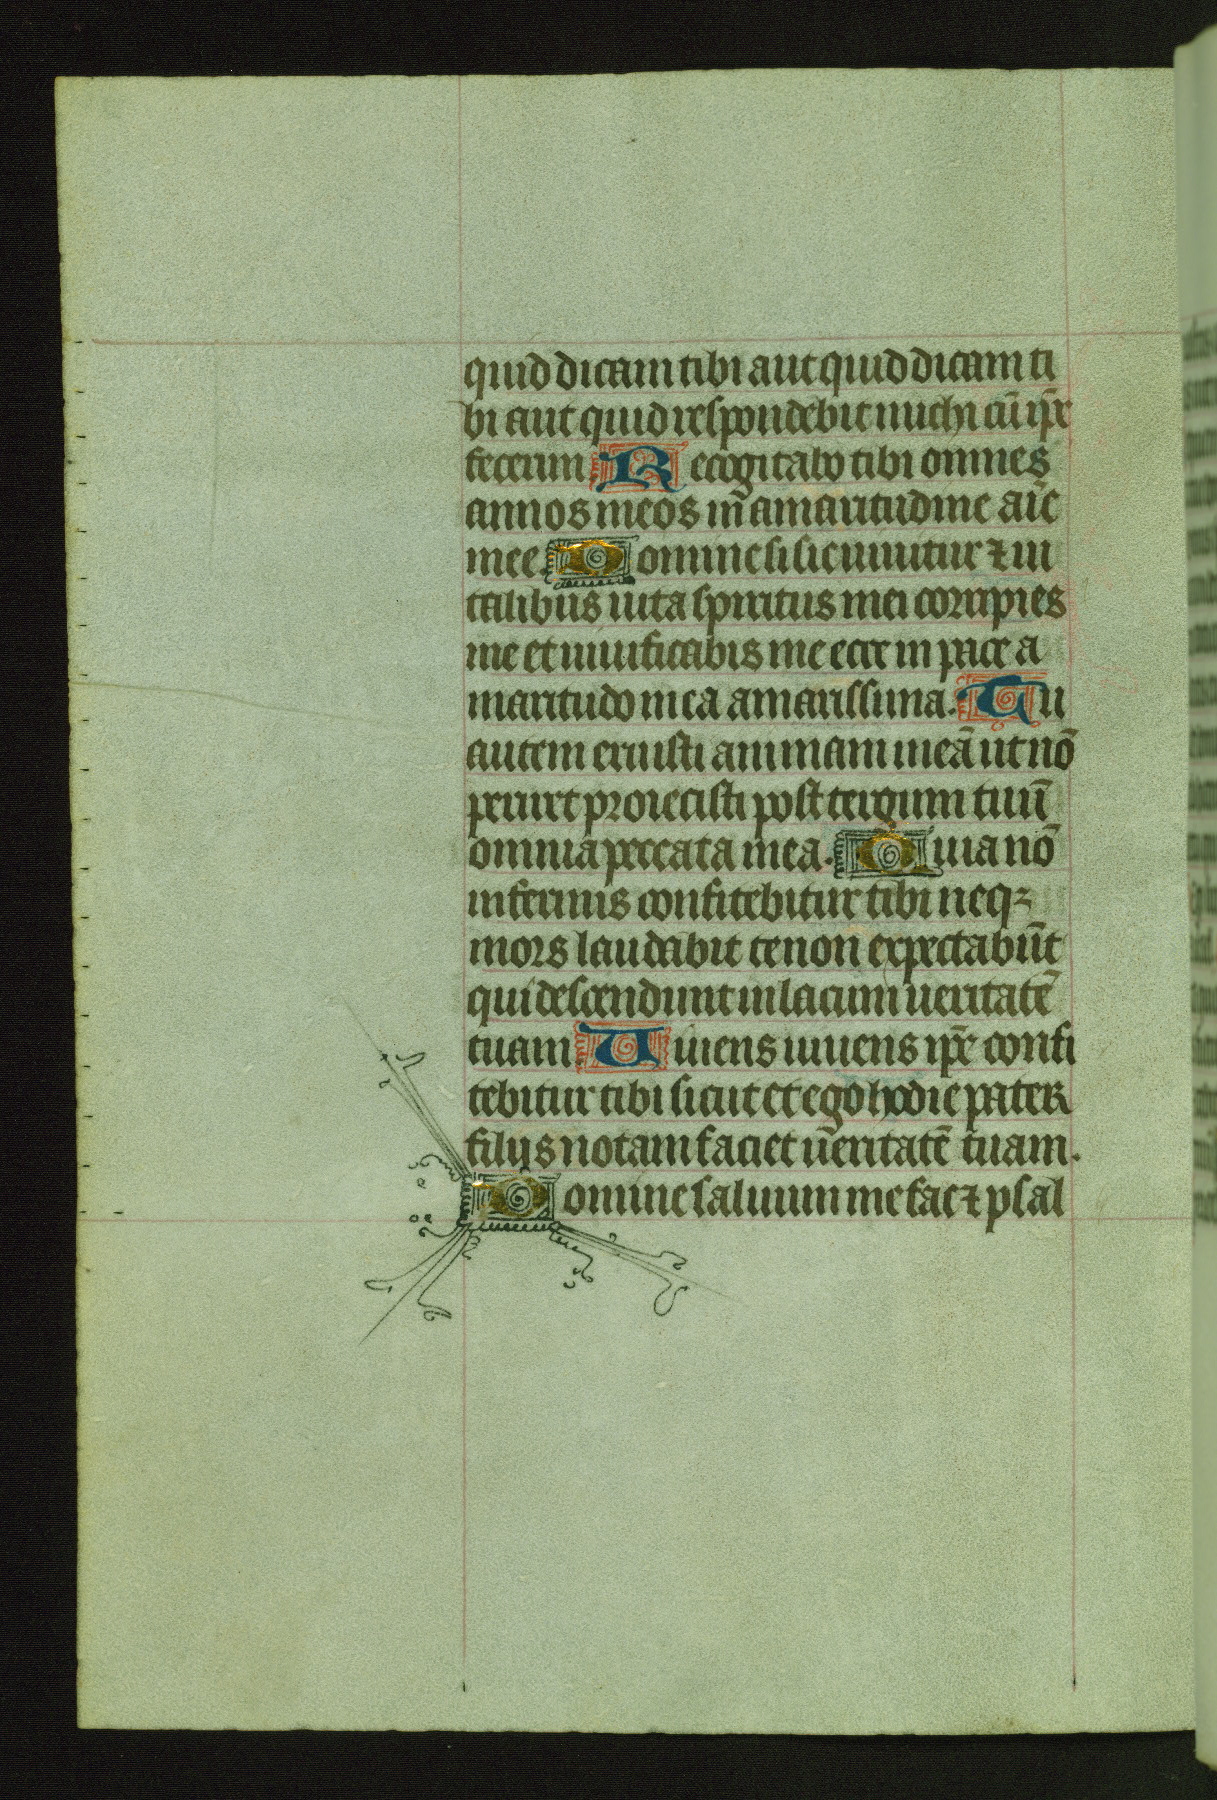 quid dicam tibi aut quid dicam ti
bi aut quid respondebit michi cū ip̄e
fecerim. Recogitabo tibi omnes
annos meos in amaritudine aīe
mee. Domine si sic uiuitur ⁊ in
talibus uita spiritus mei corripies
me et uiuificabis me ecce in pace a
maritudo mea amarissima. Tu
autem eruisti animam meā ut nō
periret proiecisti post tergum tuū
omnia peccata mea. Quia nō
infernus confitebitur tibi neqꝫ
mors laudabit te non expectabūt
qui descendunt in lacum ueritatē
tuam Uiuens uiuens ip̄e confi
tebitur tibi sicut et ego hodie pater
filijs notam faciet ueritatē tuam.
Domine saluum me fac ⁊ psal